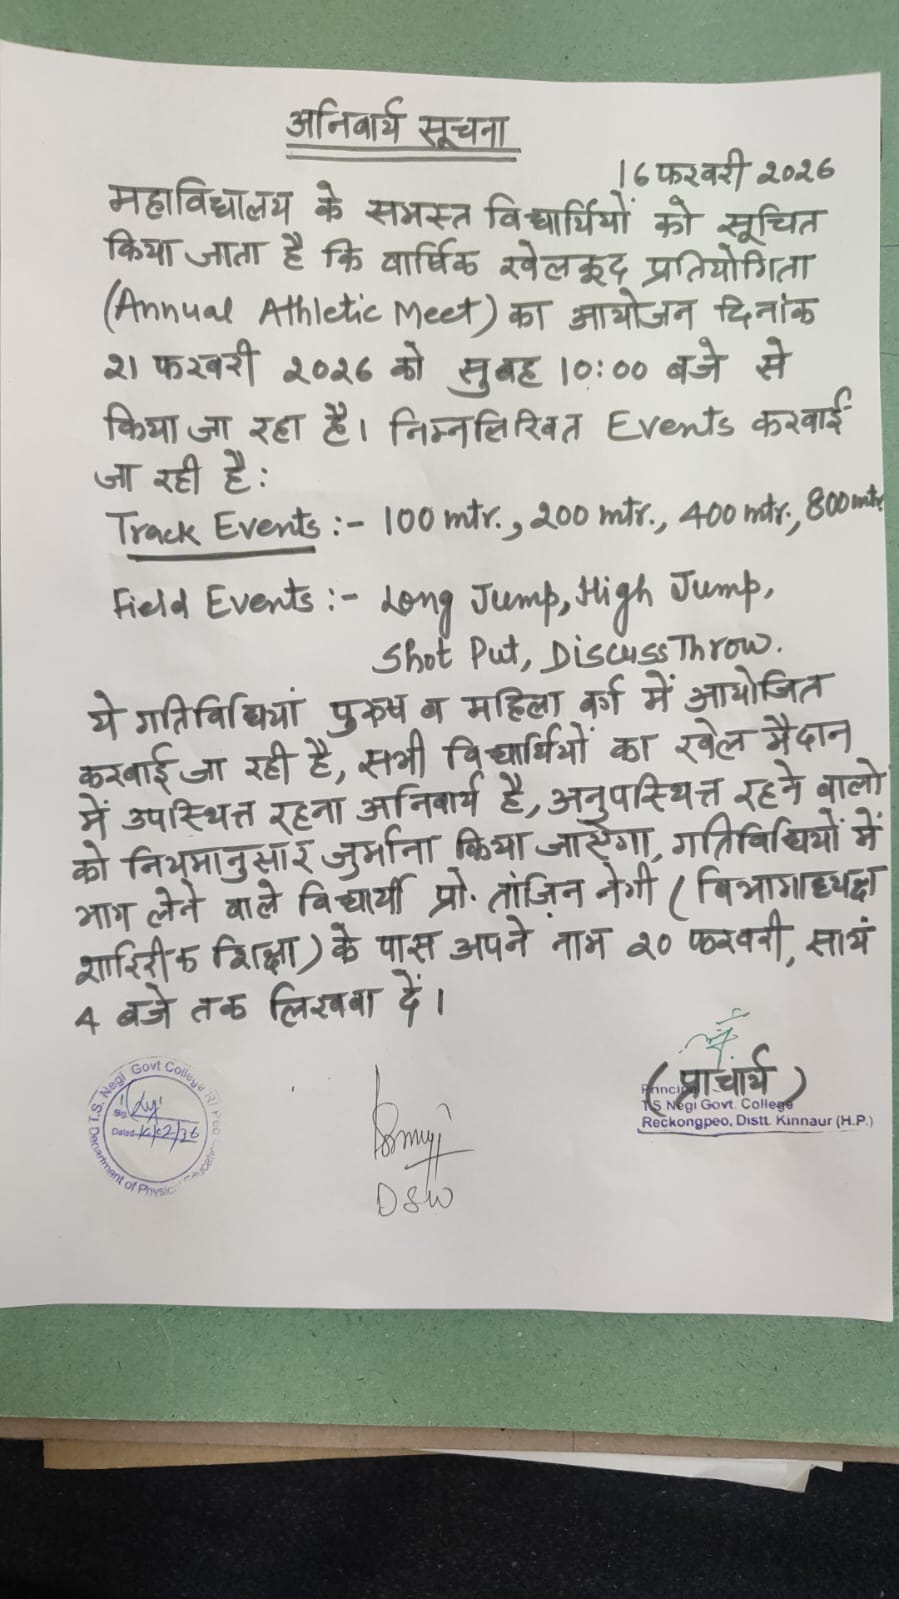 अनिवार्य सूचना
16 फरवरी 2026
महाविद्यालय के समस्त विद्यार्थियों को सूचित
किया जाता है कि वार्षिक खेलकूद प्रतियोगिता
(Annual Athletic Meet) का आयोजन दिनांक
21 फरवरी 2026 को सुबह 10:00 बजे से
किया जा रहा है। निम्नलिखित Events करवाई
जा रही है:
Track Events :- 100 mtr., 200 mtr., 400 mtr., 800 mtr.
Field Events :- Long Jump, High Jump,
Shot Put, Discuss Throw.
ये गतिविधियां पुरुष व महिला वर्ग में आयोजित
करवाई जा रही है, सभी विद्यार्थियों का खेल मैदान
में उपस्थित रहना अनिवार्य है, अनुपस्थित रहने वालो
को नियमानुसार जुर्माना किया जाएगा, गतिविधियों में
भाग लेने वाले विद्यार्थी प्रो. तांजिन नेगी (विभागाध्यक्ष
शारिरीक शिक्षा) के पास अपने नाम 20 फरवरी, सायं
4 बजे तक लिखवा दें।
(प्राचार्य)
Principal
T.S Negi Govt. College
Reckongpeo, Distt. Kinnaur (H.P.)
T.S. Negi Govt College R/Peo
Department of Physical Education
Sig.
Dated
DSW